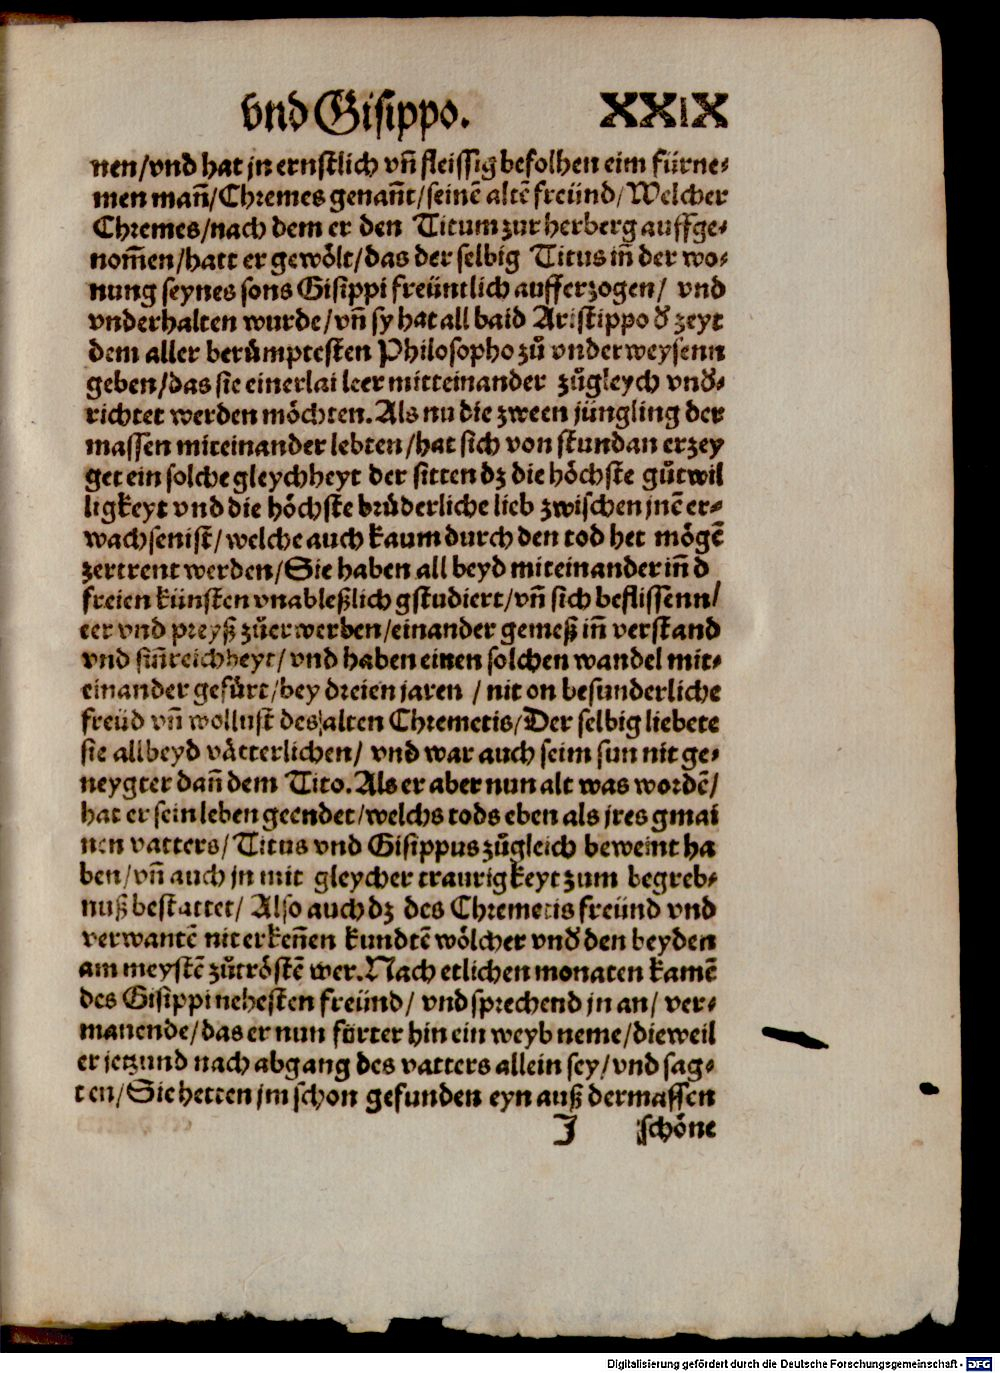 vnd Gisippo. XXIX
nen/vnd hat jn ernstlich vñ fleissig befolhen eim fürne⸗
men mañ/Chremes genañt/seinē altē freünd/Welcher
Chremes/nach dem er den Titum zur herberg auffge⸗
nom̃en/hatt er gewölt/das der selbig Titus iñ der wo⸗
nung seynes sons Gisippi freüntlich aufferzogen/ vnd
vnderhalten wurde/vñ sy hat all baid Aristippo d̕ zeyt
dem aller berümptesten Philosopho zů vnderweysenn
geben/das sie einerlai leer mitteinander zůgleych vnd̕⸗
richtet werden möchten. Als nu die zween jüngling der
massen miteinander lebten/hat sich von stundan erzey
get ein solche gleychheyt der sitten dz die höchste gůtwil
ligkeyt vnd die höchste brüderliche lieb zwischen jnē er⸗
wachsen ist/welche auch kaum durch den tod het mögē
zertrent werden/Sie haben all beyd miteinander iñ d
freien künsten vnableßlich gstudiert/vñ sich beflissenn/
eer vnd preyß zůerwerben/einander gemeß iñ verstand
vnd siñreichheyt/vnd haben einen solchen wandel mit⸗
einander gefürt/bey dreien jaren / nit on besunderliche
freüd vñ wollust des alten Chremetis/Der selbig liebete
sie allbeyd vätterlichen/ vnd war auch seim sun nit ge⸗
neygter dañ dem Tito. Als er aber nun alt was wordē/
hat er sein leben geendet/welchs tods eben als jres gmai
nen vatters/Titus vnd Gisippus zůgleich beweint ha
ben/vñ auch jn mit gleycher traurigkeyt zum begreb⸗
nuß bestattet/ Also auch dz des Chremetis freünd vnd
verwantē nit erkeñen kundtē wölcher vnd̕ den beyden
am meystē zůtröstē wer. Nach etlichen monaten kamē
des Gisippi nehesten freünd/ vnd sprechend jn an/ ver⸗
manende/das er nun förter hin ein weyb neme/dieweil
er jetzund nach abgang des vatters allein sey/vnd sag⸗
ten/Sie hetten jm schon gefunden eyn auß dermassen
J schöne
Digitalisierung gefördert durch die Deutsche Forschungsgemeinschaft - DFG